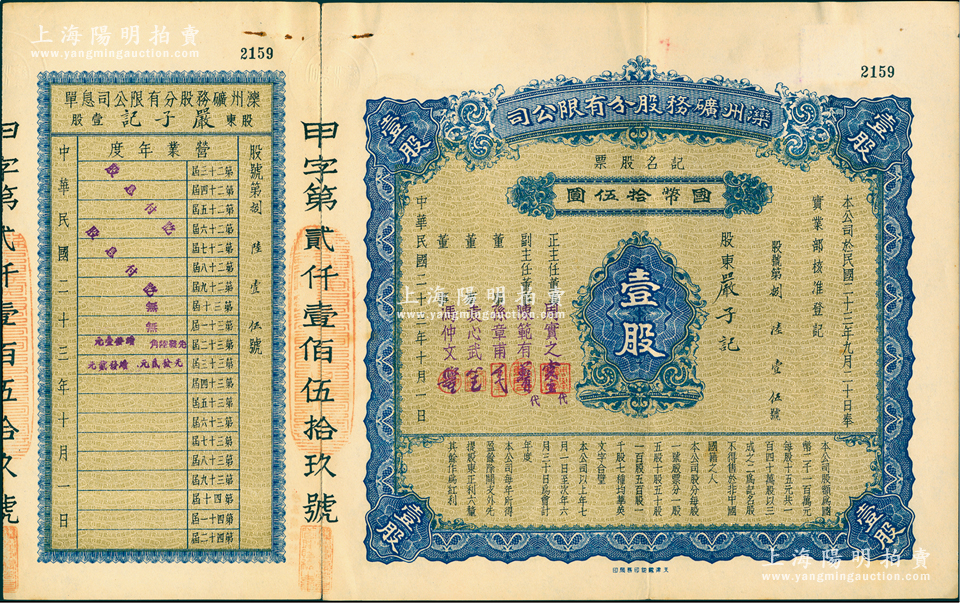 上海陽明拍賣
www.yangmingauction.com
2159
2159
灤州礦務股分有限公司息單
股東嚴子記壹股
股號第捌陸壹伍號
營業年度
第二十三屆
第二十四屆
第二十五屆
第二十六屆
第二十七屆
第二十八屆
第二十九屆
第三十屆
第三十一屆
第三十二屆
第三十三屆
第三十四屆
第三十五屆
第三十六屆
第三十七屆
第三十八屆
第三十九屆
第四十屆
第四十一屆
第四十二屆
股息付訖
股息付訖
無
無
先發陸角 續發壹元
先發貳元 續發貳元
中華民國二十三年十月一日
甲字第貳仟壹佰伍拾玖號
灤州礦務股分有限公司
記名股票
國幣拾伍圓
壹股
壹股
壹股
壹股
壹股
本公司於民國二十三年九月二十日奉
實業部核准登記
股號第捌陸壹伍號
股東嚴子記
正主任董
實之
代
副主任董陳範有
代
董
章甫
董
心武
董
仲文
中華民國二十三年十月一日
本公司股額爲國
幣二千一百萬元
每股十五元共一
百四十萬股以三
成之二爲記名股
不得售於非中國
國籍之人
本公司股分每股
一號股票分一股
五股十股五十股
一百股五百股一
千股七種均華英
文字合璧
本公司以上年七
月一日至次年六
月三十日爲會計
年度
本公司每年所得
盈餘除開支外先
提股東正利六釐
其餘作爲紅利
上海陽明拍賣
www.yangmingauction.com
上海陽明拍賣
www.yangmingauction.com